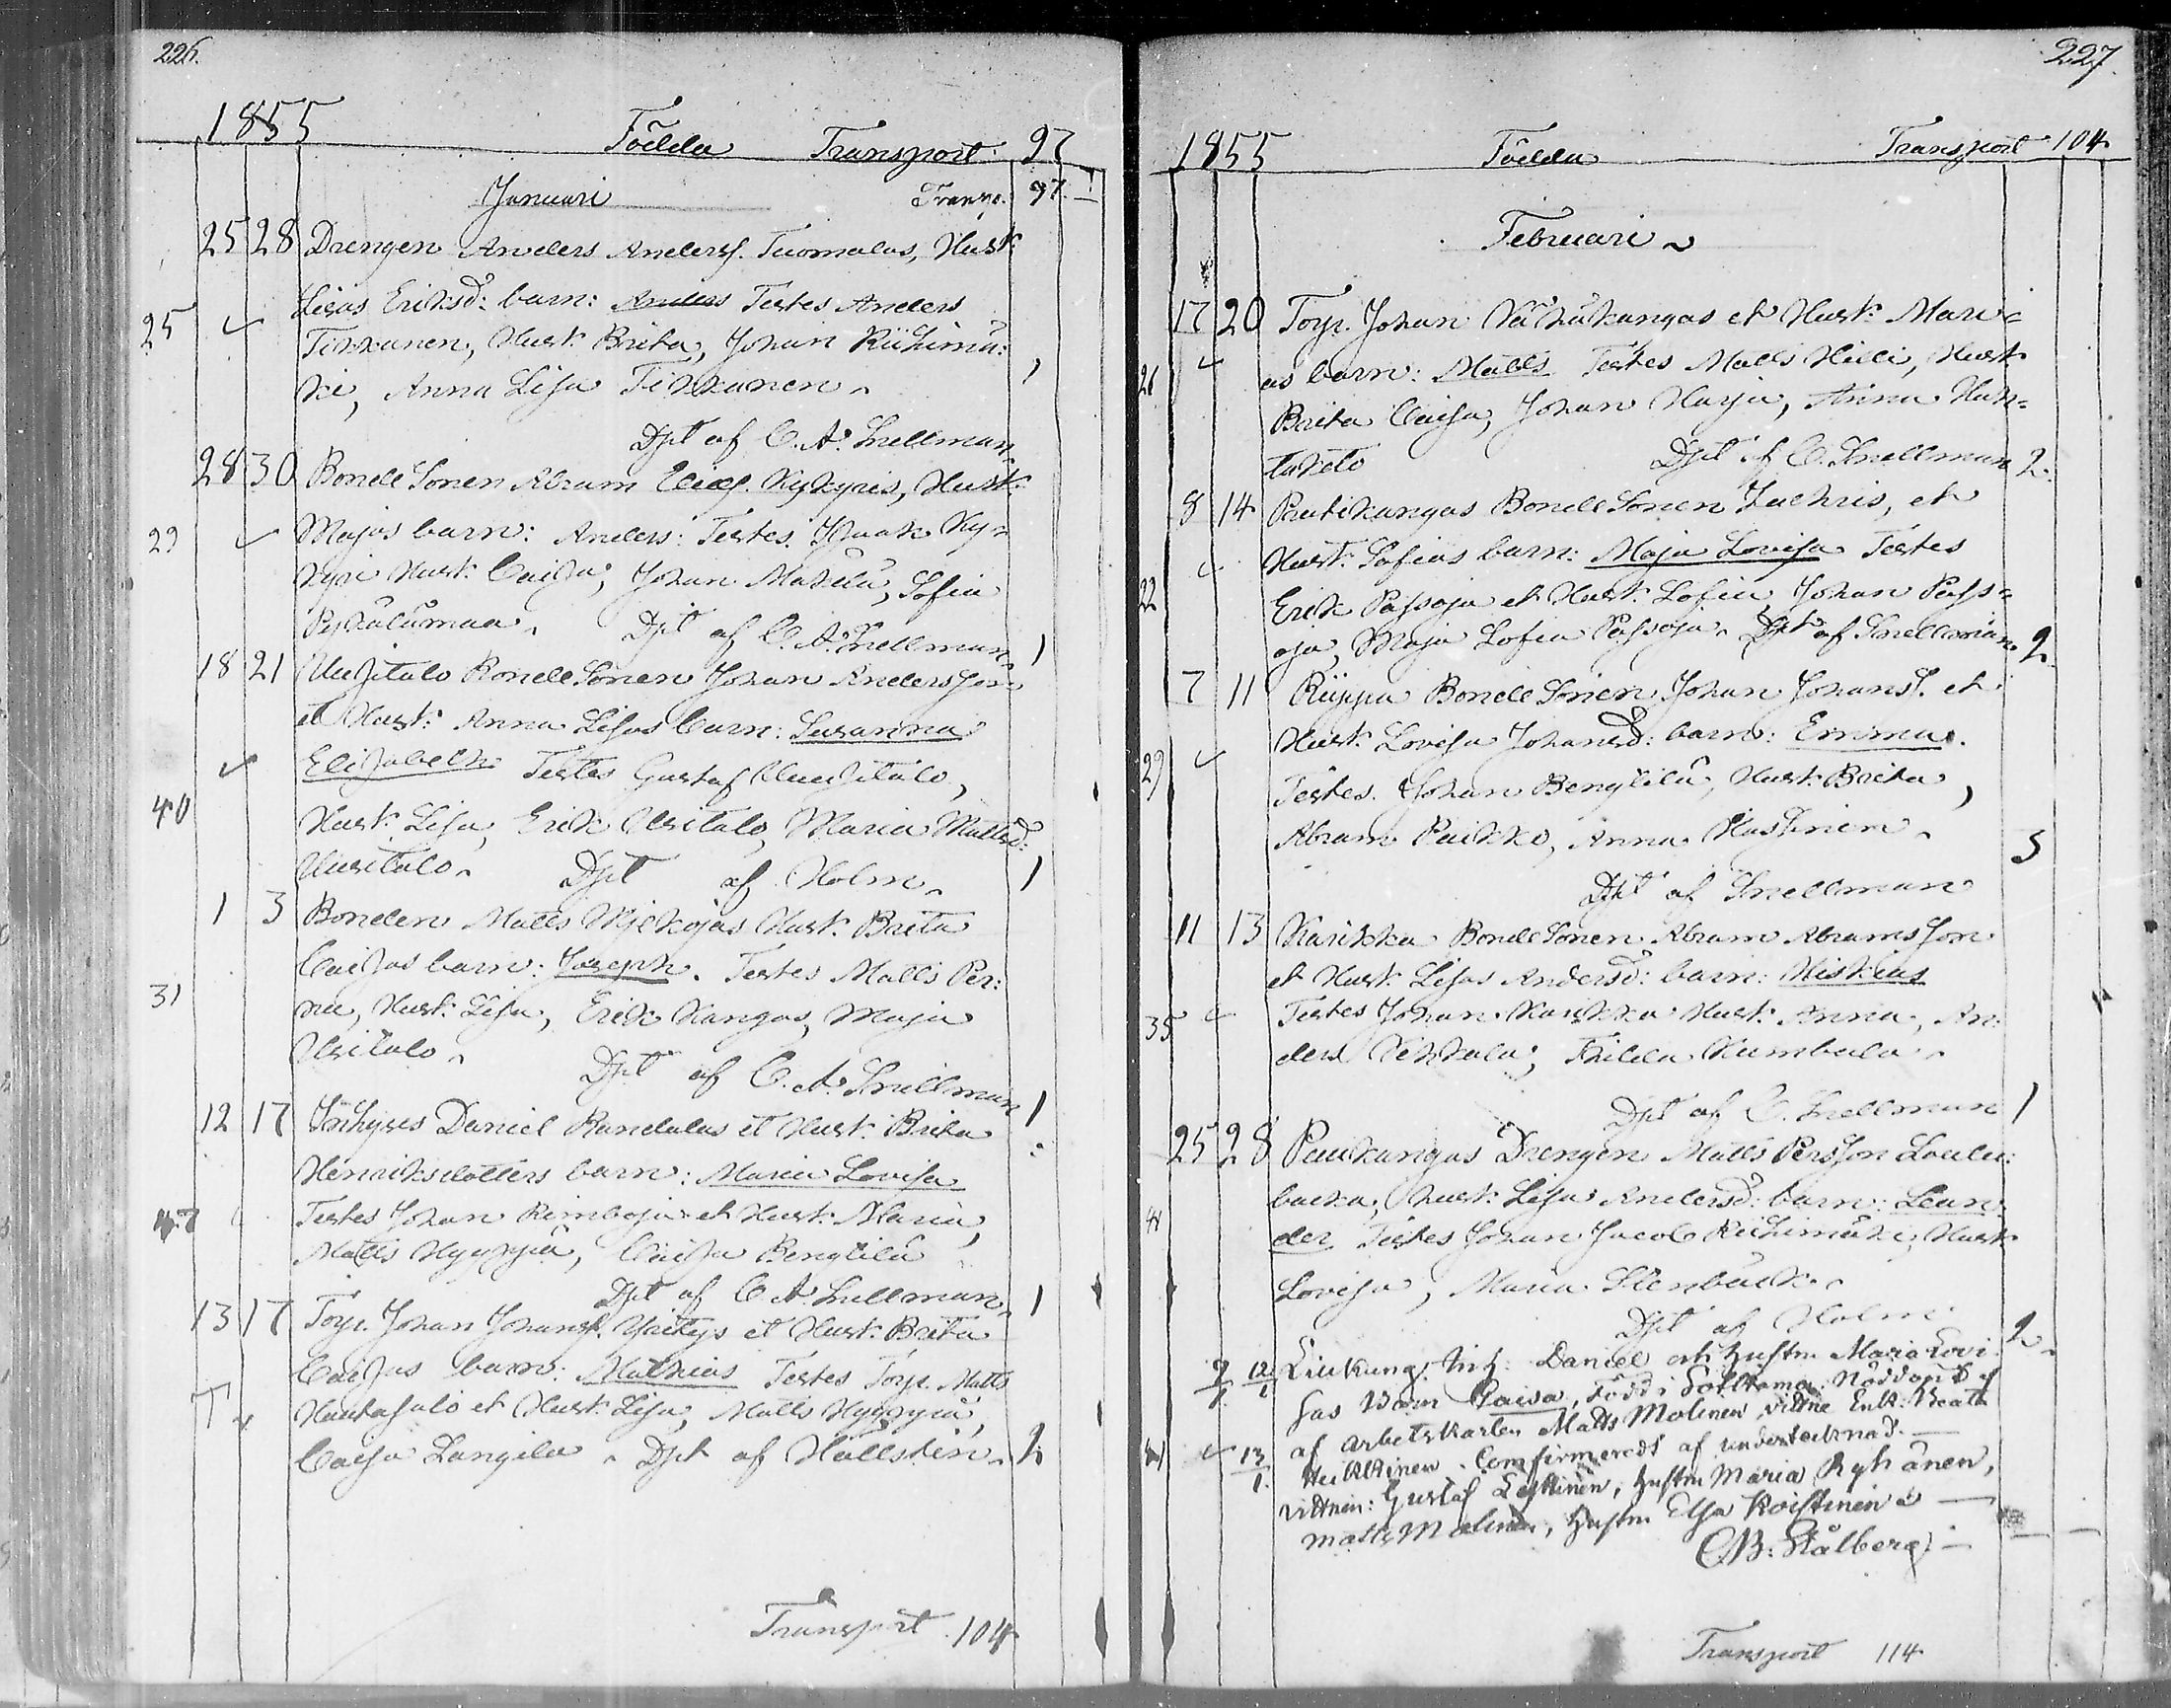 226.
1855 Födda Transport 97
Januari Transp. 97
25 28 Drengen Anders Anderss. Tuomalas, Hust:
Lisas Eriksd: barn: Anders Testes Anders
25 Tikkanen, Hust: Brita, Johan Riihimä:
ki, Anna Lisa Tikkanen.
Dpt af C. A. Snellman
28 30 Bonde Sonen Abram Kykyris, Hust:
29 Majas barn: Anders: Testes Isaak Ky=
kyri Hust: Caisa, Johan Makelä, Sofia
Dpt af C. A. Snellman 1
18 21 Uusitalo Bonde Sonen Johan Andersson
et Hust: Anna Lisas barn: Susanna
Elisabeth Testes Gustaf Uusitalo,
40 Hust: Lisa, Erik Usitalo, Maria Mattsd:
Uusitalo. Dpt af Holm. 1
1 3 Bonden Matts Hust: Brita
Caisas barn: Joseph. Testes Matts Per:
31 nu, Hust: Lisa, Erik Kangas, Maja
Usitalo.
Dpt af C. A. Snellman 1
12 17 Inhyses Daniel Randalas et Hust: Brita
Henriksdotters barn: Maria Lovisa
Testes Johan Rimboja et Hust: Maria,
Matts Hyyppä, Caisa Bengtilä
Dpt af C A. Snellman. 1
13 17 Torp. Johan Johanss. et Hust: Brita
Caisas barn: Mathias Testes Torp. Matts
Hautasalo et Hust: Lisa, Matts Hyyppä,
Caisa Langila. Dpt af Hällsten.
Transport 104
227.
1855 Födda Transport 104
Februari
17 20 Torp. Johan Vähäkangas et Hust: Mari=
26 as barn: Matts Testes Matts Hilli, Hust
Brita Caisa, Johan Harja, Anna Hau=
taketo Dpt af C. Snellman 2.
8 14 Pautikangas Bonde Sonen Zachris, et
Hust: Sofias barn: Maja Lovisa Testes
22 Erik Passoja et Hust: Sofia, Johan Pass=
oja, Maja Sofia Passoja. Dpt af Snellman. 2
7 11 Riippa Bonde Sonen Johan Johanss. et
Hust: Lovisa Johansd: barn: Emma.
29 Testes. Johan Bengtilä, Hust: Brita,
Abram Paikko, Anna Hastinen.
Dpt af Snellman
11 13 Karikka Bonde Sonen Abram Abramsson
et Hust: Lisas Andersd: barn: Hiskias
35 Testes Johan Karikka Hust: Anna, An:
ders Thilda Kumbula.
Dpt af C. Snellman 1
25 28 Paukangas Drengen Matts Persson Loulu:
backa, hust: Lisas Andersd: barn: Lean
der Testes Johan Jacob Riihimäki, Hust
Lovisa, Maria Stenback.
Dpt af Holm 2.
Daniel och hustru Maria Lovi
sas barn Caisa, Född i Sotkamo. Nöddöpt
af arbetskarlen Matts Molinen vittne Enk: Beata
13/1. Heikkinen. Comfirmeradt af undertecknad.
vittnen: Gustaf Leskinen, hustru Maria Ryhänen,
Matts Molinen, hustru Elsa Koistinen
CB: Stålberg
Transport 114